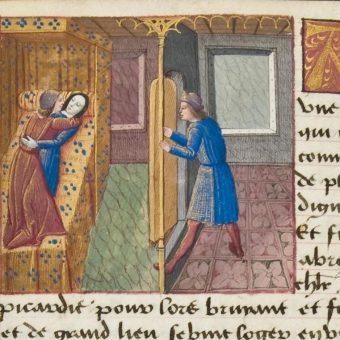 vne
qui
conn
de pl
digne
Et f
abre
chlr
picardie pour lors bruiant et f
et de grand lieu se vint loger en vn